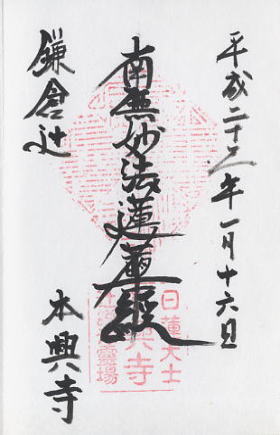 平成二十三年一月十六日
南無妙法蓮華経
鎌倉辻
本興寺
日蓮大士
霊場